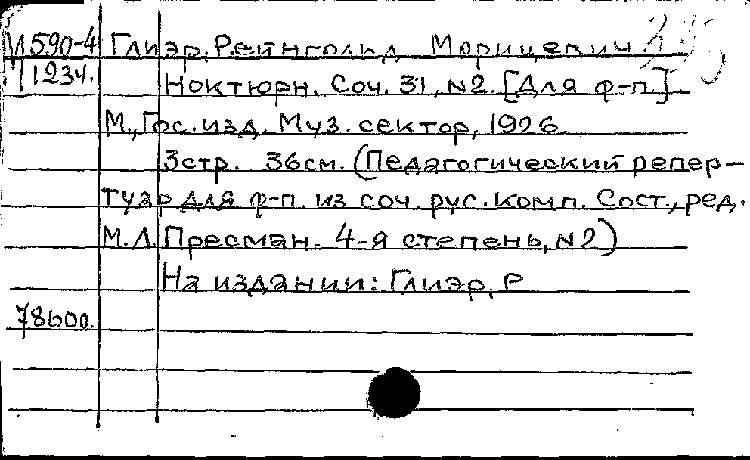 И590-4 Глиэр, Рейнгольд Морицевич
1123ч. Ноктюрн. Соч. 31, №2. [Для ф-п.]
М., Гос. изд. Муз. сектор, 1926.
3стр. 36см. (Педагогический репер-
туар для ф-п. из соч. рус. комп. Сост., ред.
М.Л. Пресман. 4-я степень, №2)
На издании: Глиэр, Р
78600.